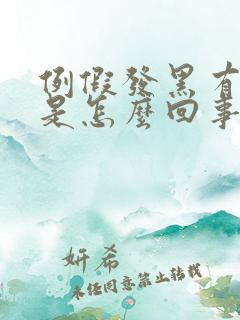 例假發黑有
是怎麼回事
妍希
未经同意禁止转载